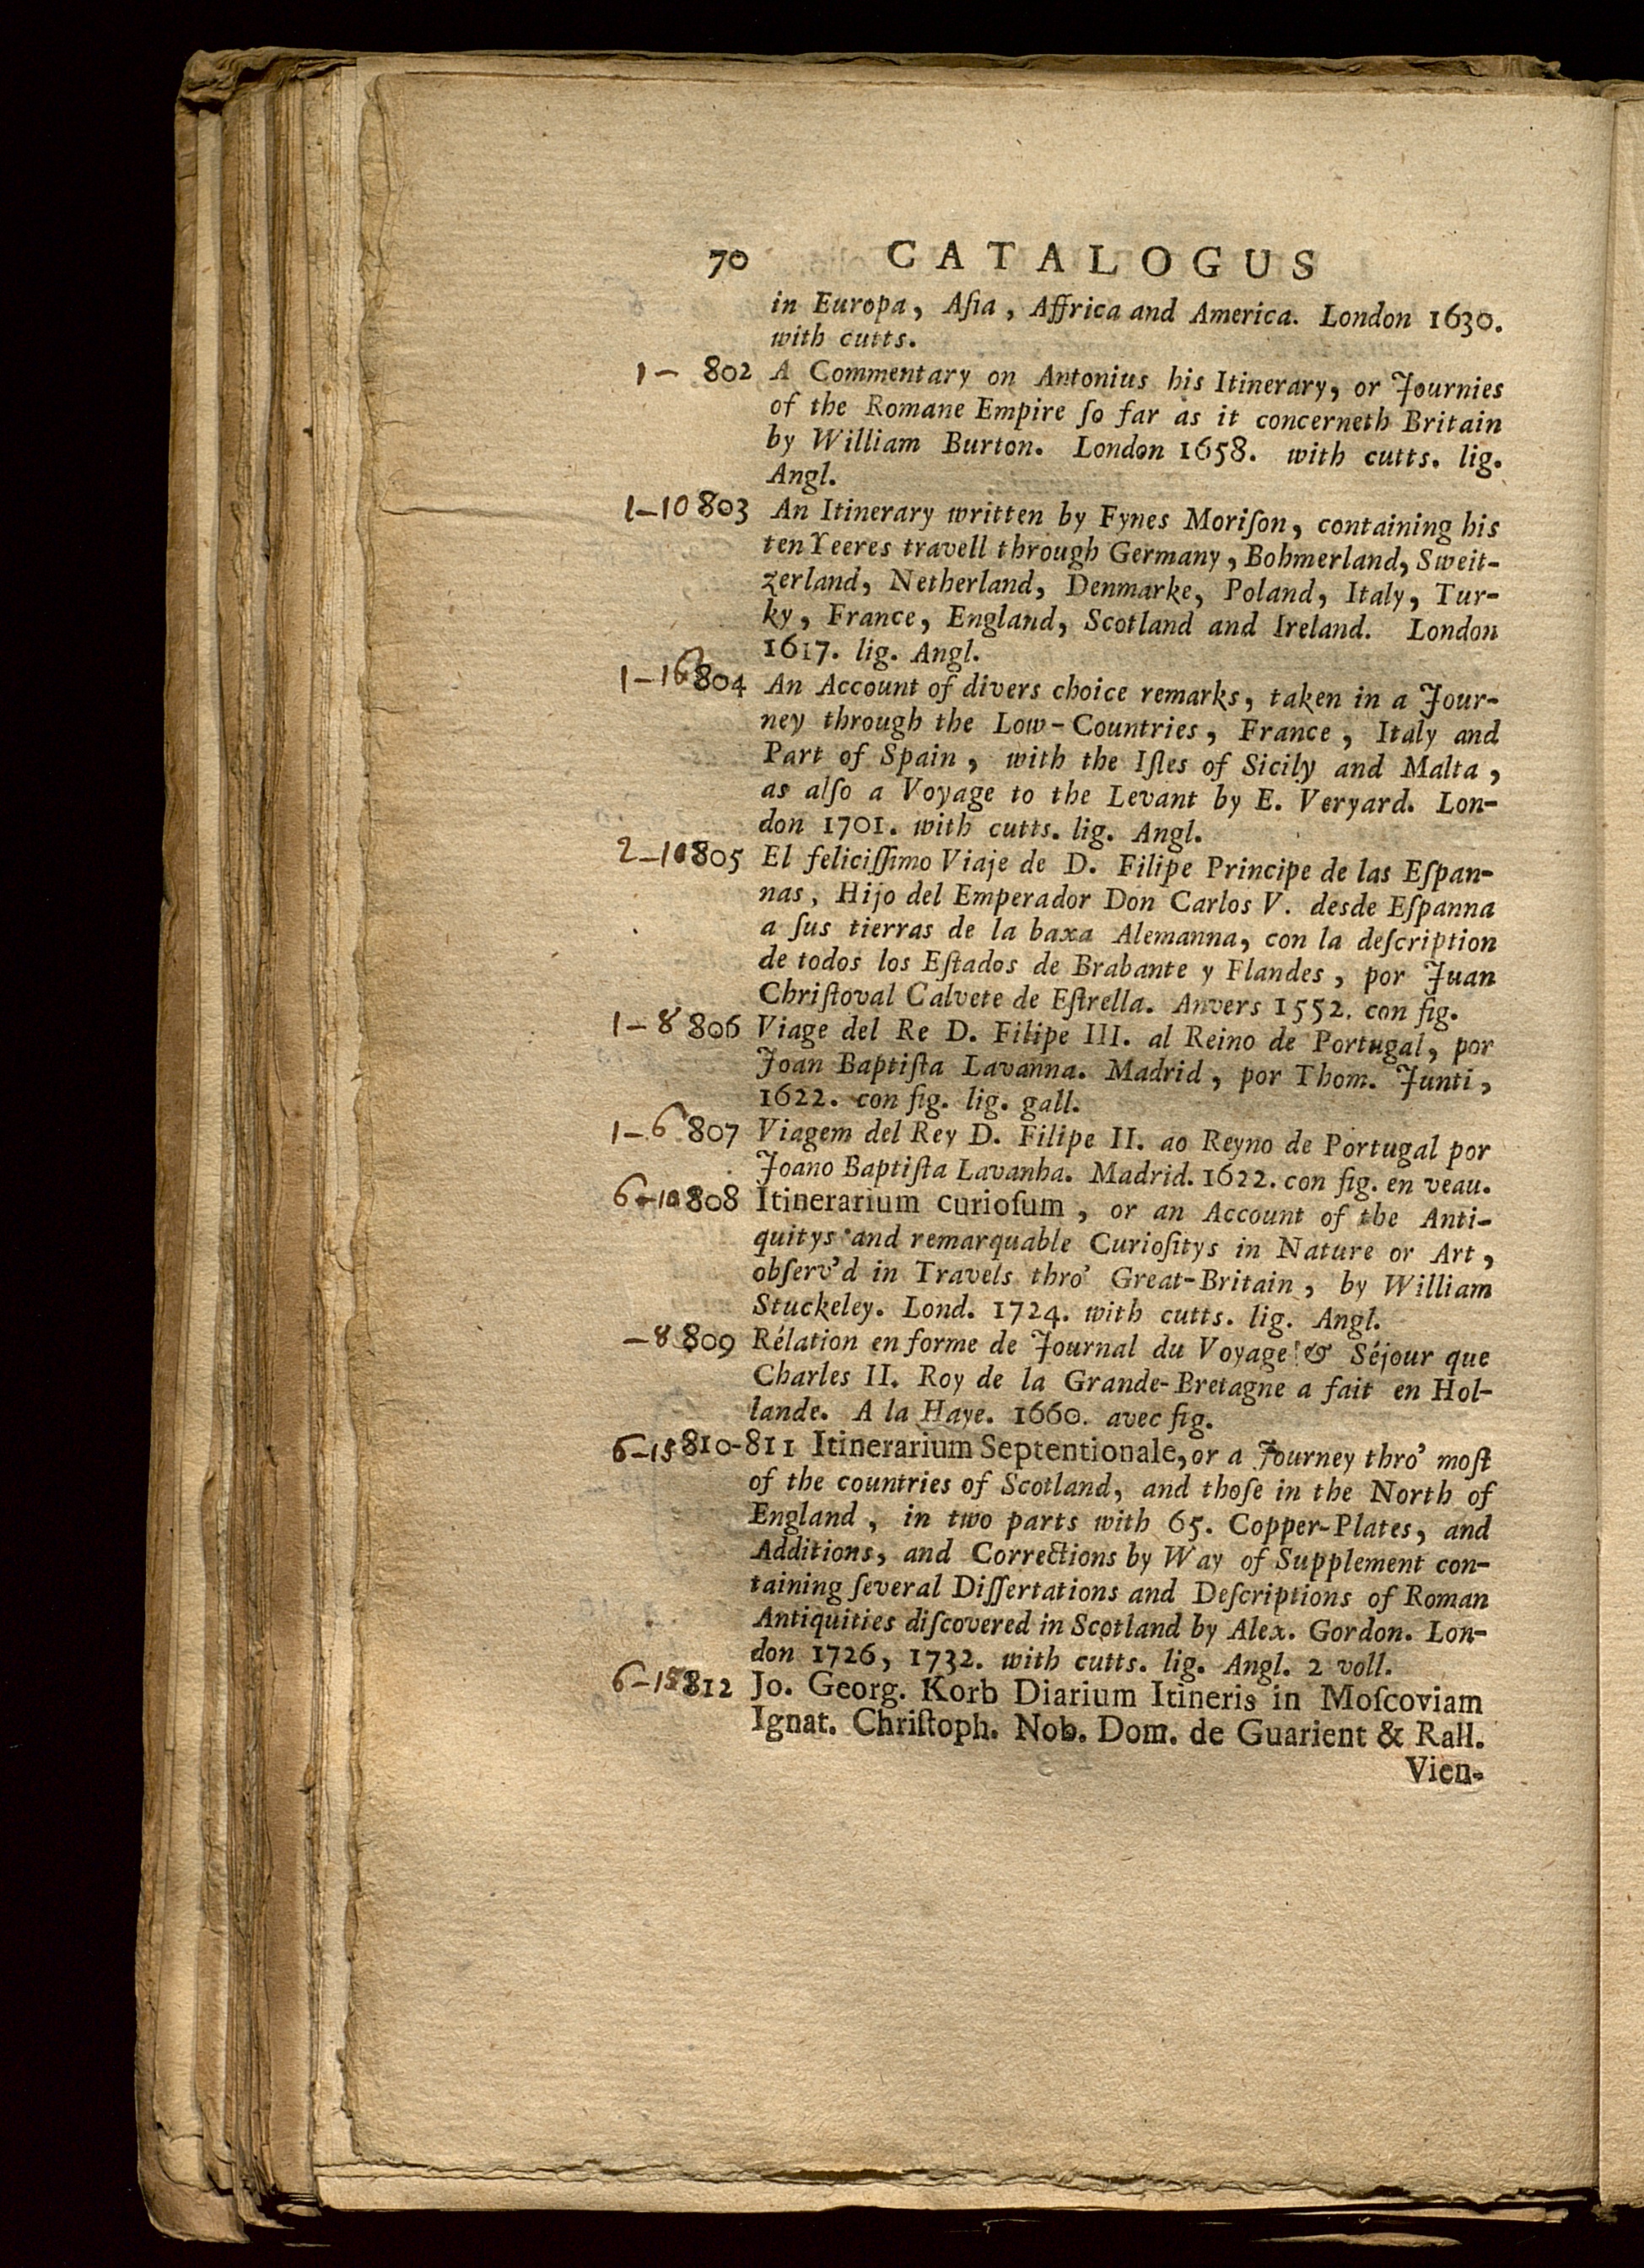 70 CATALOGUS
in Europa, Aſia, Affrica and America. London 1630.
with cutts.
1 – 802 A Commentary on Antonius his Itinerary, or Journies
of the Romane Empire ſo far as it concerneth Britain
by William Burton. London 1658. with cutts. lig.
Angl.
1–10 803 An Itinerary written by Fynes Moriſon, containing his
ten Yeeres travell through Germany, Bohmerland, Sweit-
zerland, Netherland, Denmarke, Poland, Italy, Tur-
ky, France, England, Scotland and Ireland. London
1617. lig. Angl.
1–16 804 An Account of divers choice remarks, taken in a Jour-
ney through the Low-Countries, France, Italy and
Part of Spain, with the Iſles of Sicily and Malta,
as alſo a Voyage to the Levant by E. Veryard. Lon-
don 1701. with cutts. lig. Angl.
2–10 805 El feliciſſimo Viaje de D. Filipe Principe de las Eſpan-
nas, Hijo del Emperador Don Carlos V. desde Eſpanna
a ſus tierras de la baxa Alemanna, con la deſcription
de todos los Eſtados de Brabante y Flandes, por Juan
Chriſtoval Calvete de Eſtrella. Anvers 1552. con fig.
1–8 806 Viage del Re D. Filipe III. al Reino de Portugal, por
Joan Baptiſta Lavanna. Madrid, por Thom. Junti,
1622. con fig. lig. gall.
1–6 807 Viagem del Rey D. Filipe II. ao Reyno de Portugal por
Joano Baptiſta Lavanha. Madrid. 1622. con fig. en veau.
6–10 808 Itinerarium curioſum, or an Account of the Anti-
quitys and remarquable Curioſitys in Nature or Art,
obſerv'd in Travels thro' Great-Britain, by William
Stuckeley. Lond. 1724. with cutts. lig. Angl.
–8 809 Rélation en forme de Journal du Voyage & Séjour que
Charles II. Roy de la Grande-Bretagne a fait en Hol-
lande. A la Haye. 1660. avec fig.
6–15 810-811 Itinerarium Septentionale, or a Journey thro' moſt
of the countries of Scotland, and thoſe in the North of
England, in two parts with 65. Copper-Plates, and
Additions, and Corrections by Way of Supplement con-
taining ſeveral Diſſertations and Deſcriptions of Roman
Antiquities diſcovered in Scotland by Alex. Gordon. Lon-
don 1726, 1732. with cutts. lig. Angl. 2 voll.
6–15 812 Jo. Georg. Korb Diarium Itineris in Moſcoviam
Ignat. Chriſtoph. Nob. Dom. de Guarient & Rall.
Vien-